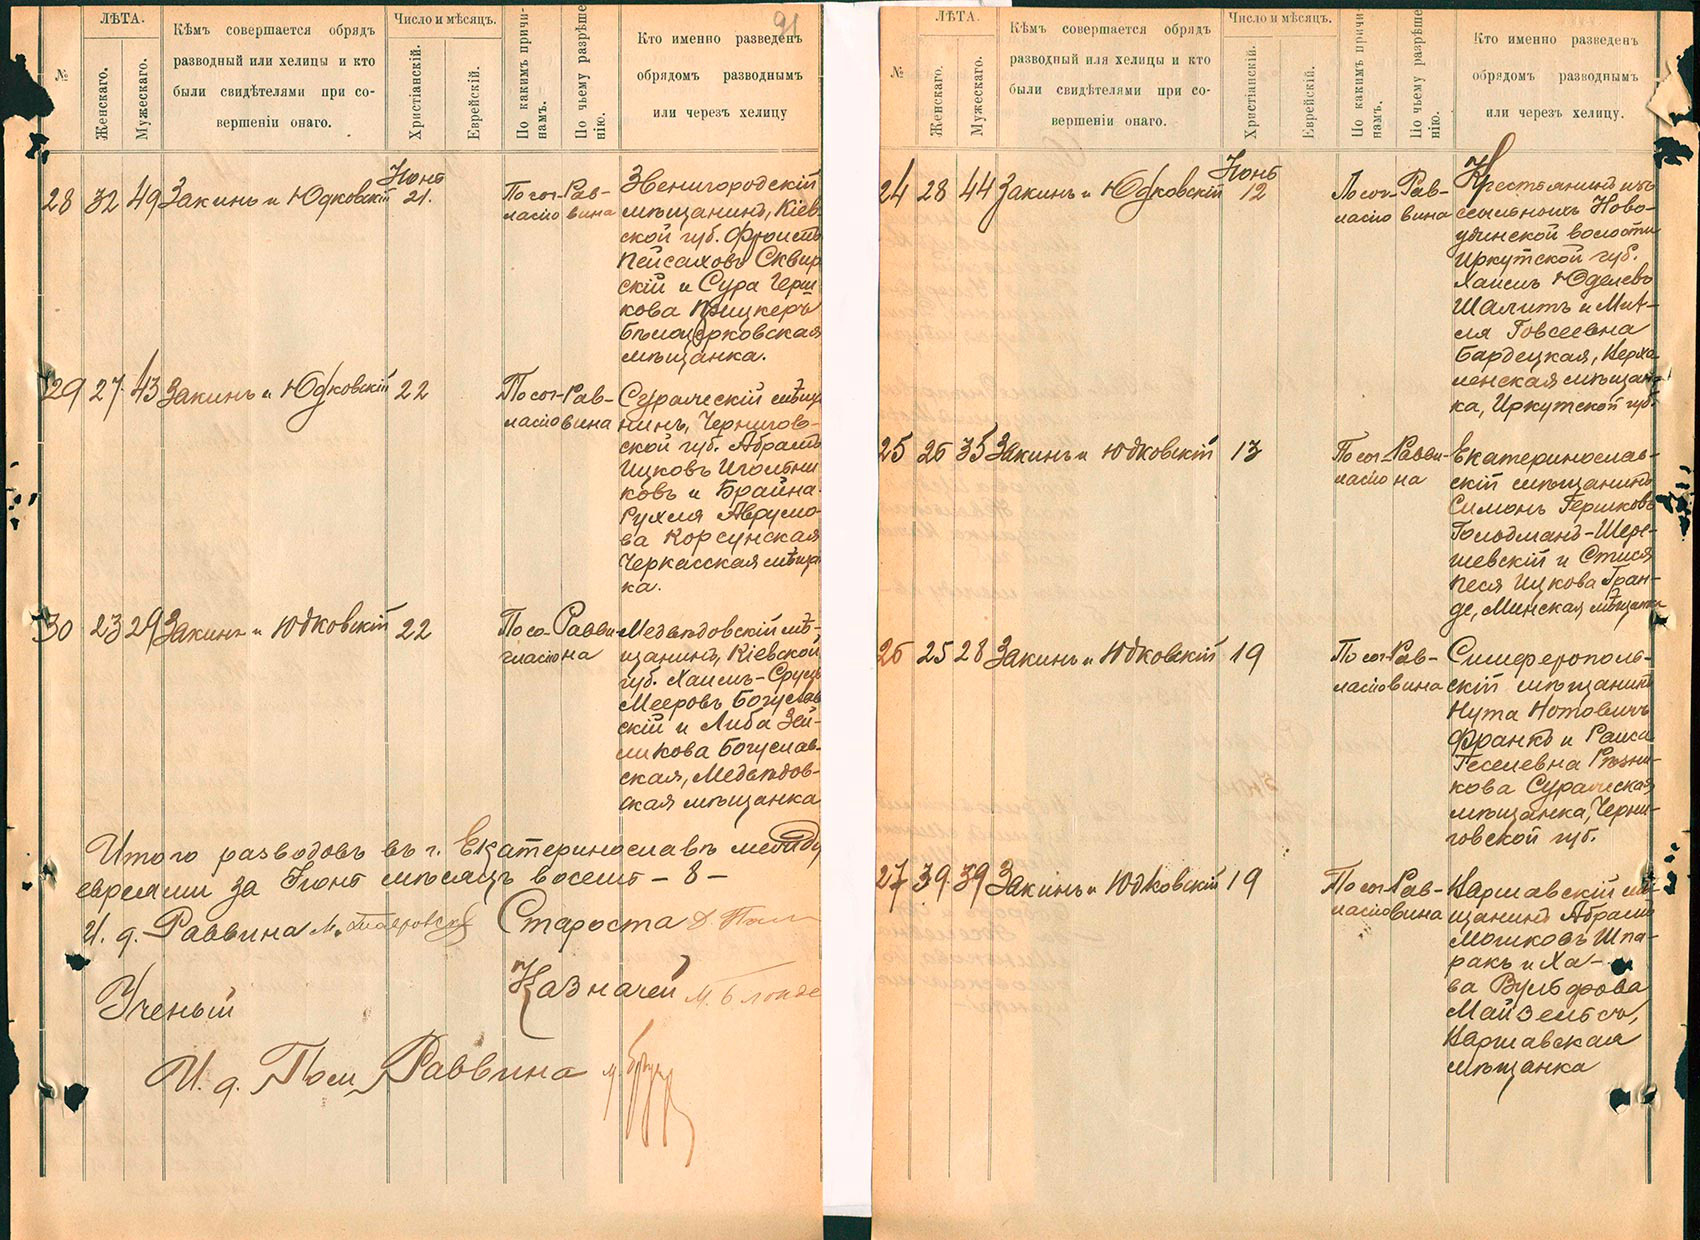 91
ЛѢТА.
Число и мѣсяцъ.
№
Женскаго.
Мужескаго.
Кѣмъ совершается обрядъ
разводный или хелицы и кто
были свидѣтелями при со-
вершеніи онаго.
Христіанскій.
Еврейскій.
По какимъ причи-
намъ.
По чьему разрѣше
нію.
Кто именно разведенъ
обрядомъ разводнымъ
или черезъ хелицу
28 32 49 Закинъ и Юдковскій Іюнь 21. По сог- Рав-
ласію вина
Звенигородскій
мѣщанинъ, Кіев
ской губ. Фроимъ
Пейсаховъ Сквир
скій и Сура Герш
кова Прицкеръ
бѣлоцерковская
мѣщанка.
29 27 43 Закинъ и Юдковскій 22 По сог- Рав-
ласію вина
Суражскій мѣща
нинъ, Чернигов-
ской губ. Абрамъ
Ицковъ Игольни
ковъ и Брайна-
Рухля Аврумо-
ва Корсунская
Черкасская мѣщан
ка.
30 23 29 Закинъ и Юдковскій 22 По со- Равви-
гласію на
Медвѣдовскій мѣ-
щанинъ, Кіевской
губ. Хаимъ-Сруль
Мееровъ Богуслав
скій и Либа Зей-
ликова Богуслав-
ская, Медвѣдов-
ская мѣщанка
Итого разводовъ въ г. Екатеринославѣ между
евреями за Іюнь мѣсяцъ восемь - 8 -
И. д. Раввина
Староста
Казначей М. Блонде
Ученый
И. д. Пом. Раввина
ЛѢТА.
Число и мѣсяцъ.
№
Женскаго.
Мужескаго.
Кѣмъ совершается обрядъ
разводный или хелицы и кто
были свидѣтелями при со-
вершеніи онаго.
Христіанскій.
Еврейскій.
По какимъ причи
намъ.
По чьему разрѣше
нію.
Кто именно разведенъ
обрядомъ разводнымъ
или черезъ хелицу.
24 28 44 Закинъ и Юдковскій Іюнь 12 По сог- Рав-
ласію вина
Крестьянинъ изъ
ссыльныхъ Ново-
удинской волости
Иркутской губ.
Хаимъ Юделевъ
Шалитъ и
Говсеевна
Бардецкая,
ленская мѣщан-
ка, Иркутской губ.
25 26 35 Закинъ и Юдковскій 13 По сог- Равви-
ласію на
Екатеринослав-
скій мѣщанинъ
Симонъ Гершковъ
Гольдманъ-Шере-
шевскій и Стися
Песя Ицкова Гран-
де, Минская мѣщанка
26 25 28 Закинъ и Юдковскій 19 По сог- Рав-
ласію вина
Симферополь-
скій мѣщанинъ
Нута Нотовичъ
Франкъ и Раиса
Геселевна Рѣзни-
кова Суражская
мѣщанка, Черни-
говской губ.
27 39 39 Закинъ и Юдковскій 19 По сог- Рав-
ласію вина
Варшавскій мѣ-
щанинъ Абрамъ
Мошковъ Шпа-
ракъ и Ха-
ва Вульфова
Майзельсъ,
Варшавская
мѣщанка